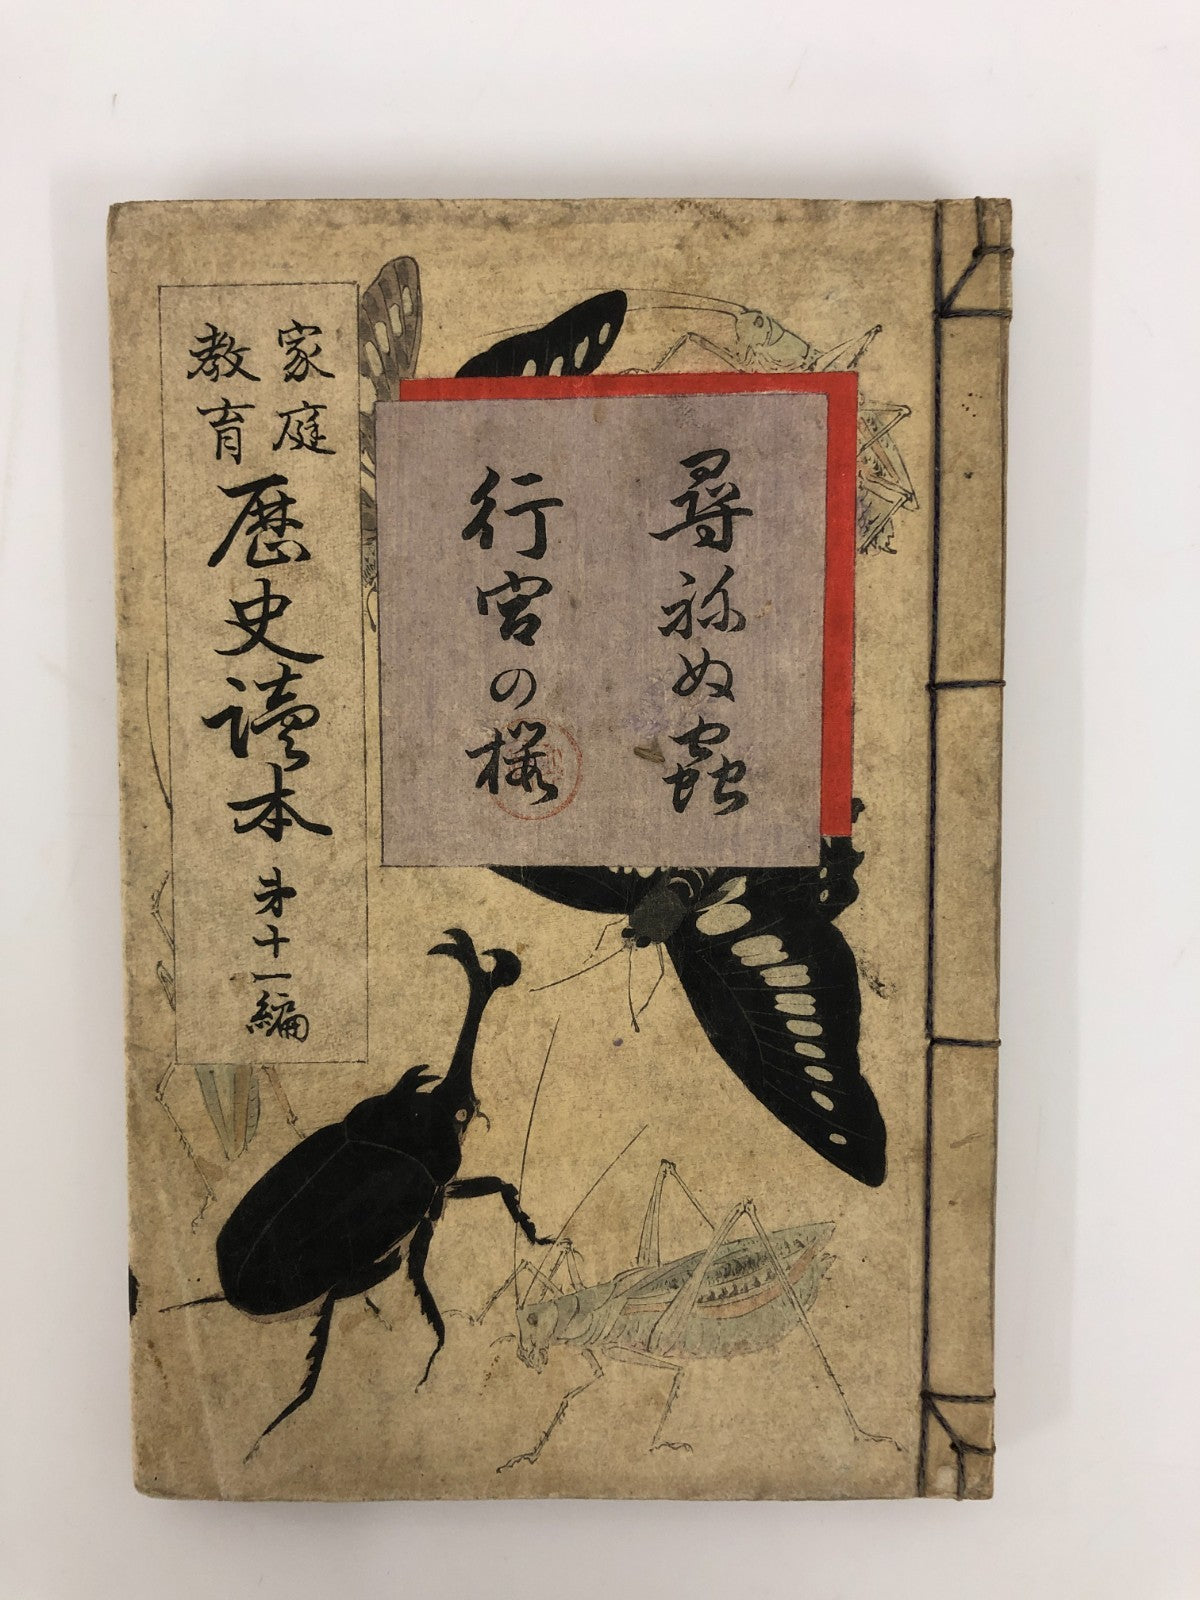 尋ねぬ蟲
行宮の櫻
家庭
教育
歴史讀本 第十一編